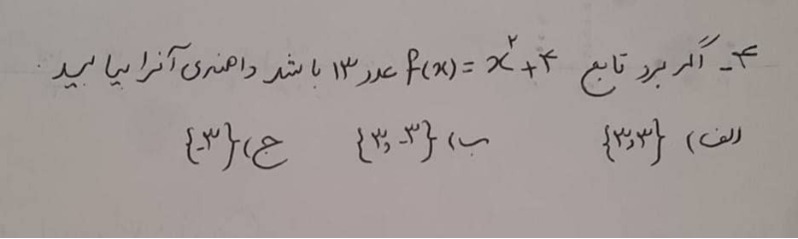 ۴- اگر برد تابع f(x) = x² + ۴ عدد ۱۳ باشد دامنه‌ی آنرا بیابید.
الف) {۳و۳} ب) {۳و -۳} ج) {-۳}